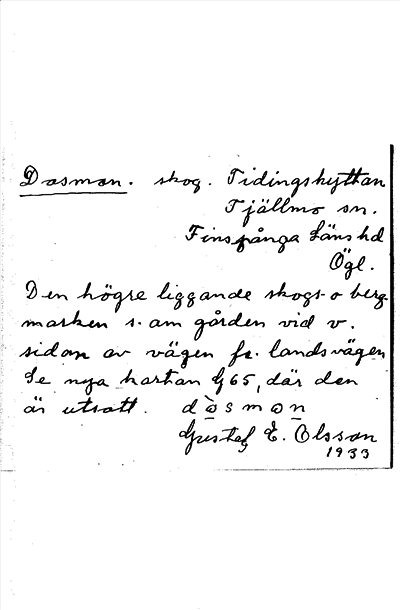 Dosmon. skog. Tidingshyttan
Tjällmo sn.
Finspånga Läns hd
Ögl.
Den högre liggande skogs- o berg-
marken s. om gården vid v.
sidan av vägen fr. landsvägen
Se nya kartan G 65, där den
är utsatt. dòsmon
Gustaf E. Olsson
1933